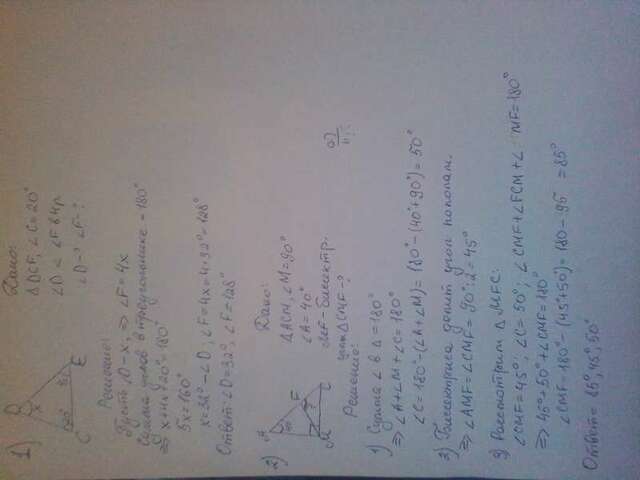 1)
D
x
20°
C
E
Дано:
Δ DCF, ∠C=20°
∠D < ∠F в 4р
∠D-? ∠F-?
Решение:
Пусть ∠D-x. ⇒ ∠F=4x
Сумма углов в треугольнике = 180°
⇒ x+4x+20°=180°
5x=160°
x=32°-∠D, ∠F=4x=4·32°=128°
Ответ: ∠D=32°, ∠F=128°
2)
A
F
M
C
Дано:
ΔACM, ∠M=90°
∠A=40°
MF-биссектр.
ΔCMF-?
Решение:
1) Сумма ∠ в Δ=180°
⇒ ∠A+∠M+∠C=180°
∠C=180°-(∠A+∠M)=180°-(40°+90°)=50°
2) Биссектриса делит угол пополам.
⇒ ∠AMF=∠CMF=90°:2=45°
3) Рассмотрим Δ MFC:
∠CMF=45°, ∠C=50°, ∠CMF+∠FCM+∠ MF=180°
⇒ 45°+50°+∠CMF=180°
∠CMF=180°-(45°+50°)=180-95 =85°
Ответ= 85°, 45°, 50°